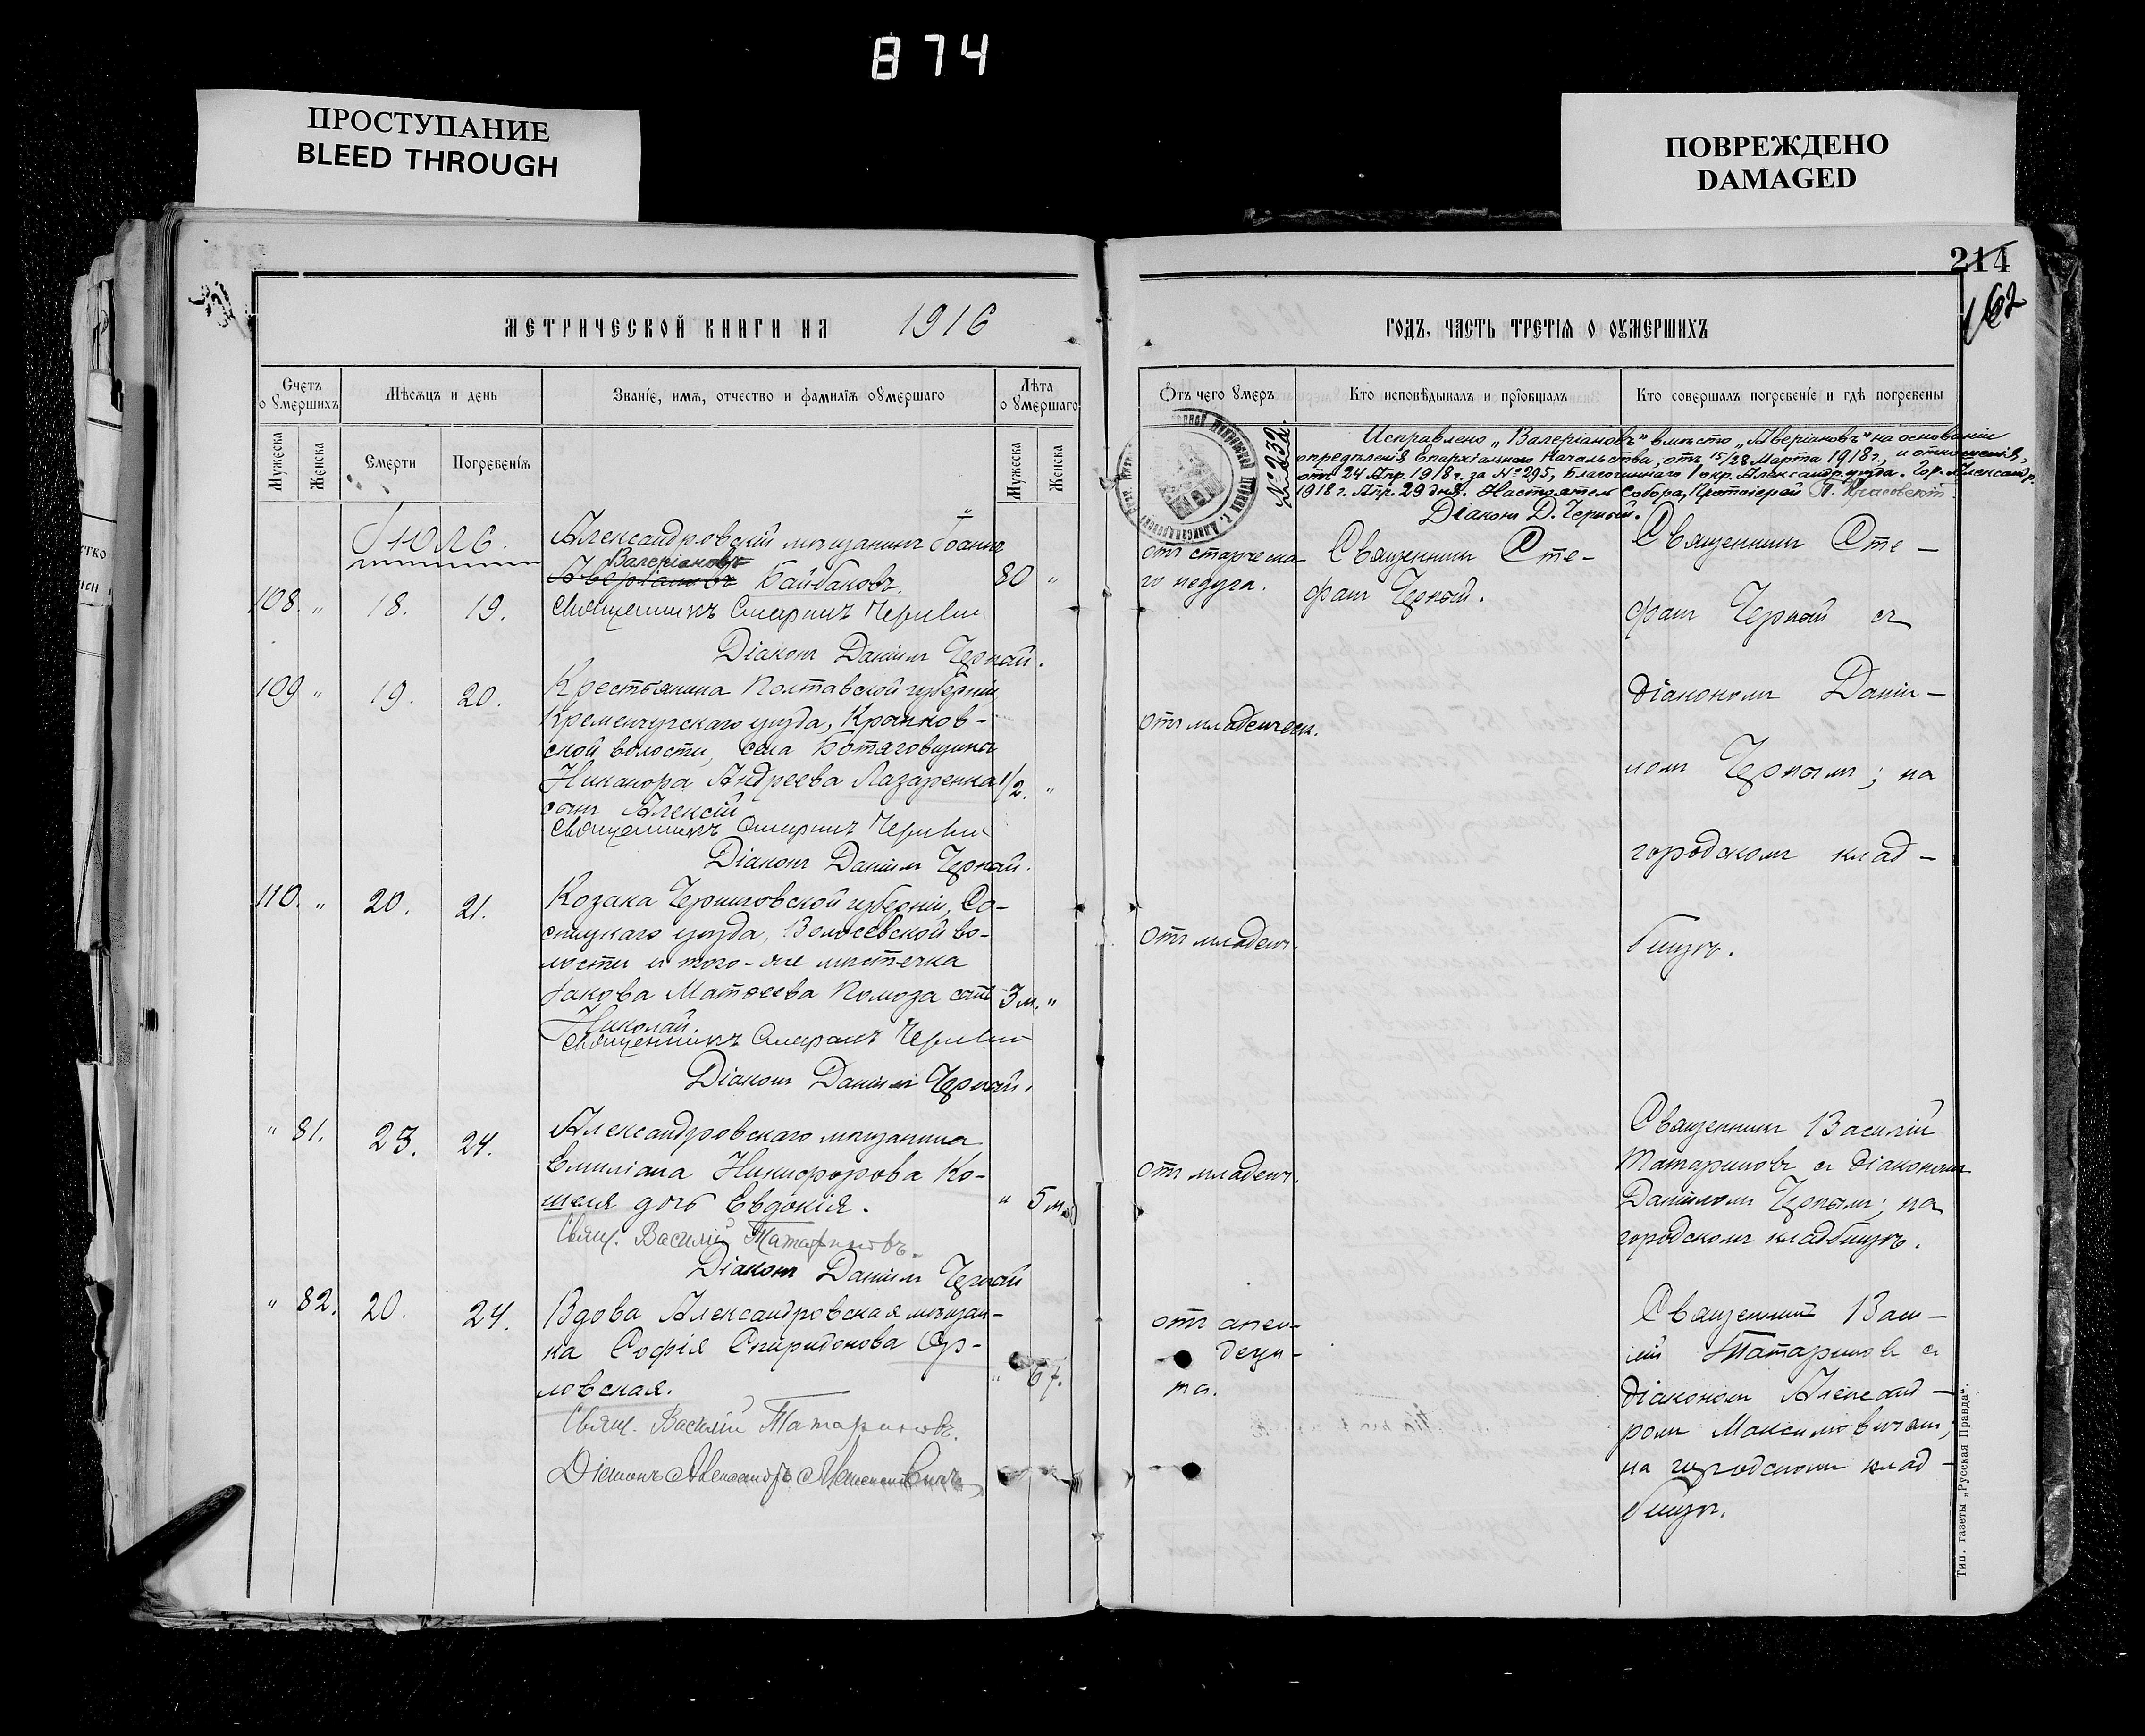 874
ПРОСТУПАНИЕ
BLEED THROUGH
ПОВРЕЖДЕНО
DAMAGED
214
162
МЕТРИЧЕСКОЙ КНИГИ НА 1916
ГОДЪ, ЧАСТЬ ТРЕТІЯ О ОУМЕРШИХЪ
Счетъ о умершихъ
Мѣсяцъ и день
Званіе, имя, отчество и фамилія оумершаго
Лѣта о умершаго
Мужеска
Женска
Смерти
Погребенія
Мужеска
Женска
Отъ чего умеръ
Кто исповѣдывалъ и пріобщалъ
Кто совершалъ погребеніе и гдѣ погребены
№232
Исправлено „Валеріановъ" вмѣсто „Аверіановъ" на основаніи
опредѣленія Епархіальнаго Начальства, отъ 15/28 Марта 1918 г., и отношенія,
отъ 24 Апр. 1918 г. за № 295, Благочиннаго 1 окр. Александр. уѣзда. Гор. Александр.
1918 г. Апр. 29 дня. Настоятель Собора, Протоіерей
Діаконъ Д. Черный.
Іюль.
Александровскій мѣщанинъ Іоаннъ
Валеріановъ
Аверіановъ Байбаковъ.
108. „ 18. 19.
80 „
Священникъ Стефанъ Черный
Діаконъ Даніилъ Черный.
отъ старческа-
го недуга.
Священникъ Сте-
фанъ Черный.
Священникъ Сте-
фанъ Черный съ
діакономъ Даніи-
ломъ Чернымъ; на
городскомъ клад-
бищѣ.
109 „ 19. 20.
Крестьянина Полтавской губерніи
Кременчугскаго уѣзда,
ской волости, села
Никанора Андреева Лазаренка
сынъ Алексій
1/2. „
Священникъ Стефанъ Черный
Діаконъ Даніилъ Черный.
отъ младенческ.
110. „ 20. 21.
Козака Черниговской губерніи, Со-
сницкаго уѣзда, во-
лости и того-же мѣстечка
Іакова Матѳеева Помоза сынъ
Николай.
3 м. „
Священникъ Стефанъ Черный
Діаконъ Даніилъ Черный.
отъ младенч.
„ 81. 23. 24.
Александровскаго мѣщанина
Емиліана Никифорова Ко-
шеля дочь Евдокія.
„ 5 м.
Свящ. Василій Татариновъ.
Діаконъ Даніилъ Черный
отъ младенч.
Священникъ Василій
Татариновъ съ діакономъ
Даніиломъ Чернымъ; на
городскомъ кладбищѣ.
„ 82. 20. 24.
Вдова Александровская мѣщан-
ка Софія Спиридонова Ор-
ловская.
„ 67.
Свящ. Василій Татариновъ.
Діаконъ Александръ Максимовичъ
отъ апен-
децы-
та.
Священникъ Васи-
лій Татариновъ съ
діакономъ Александ-
ромъ Максимовичемъ;
на городскомъ клад-
бищѣ.
Тип. газеты „Русская Правда".